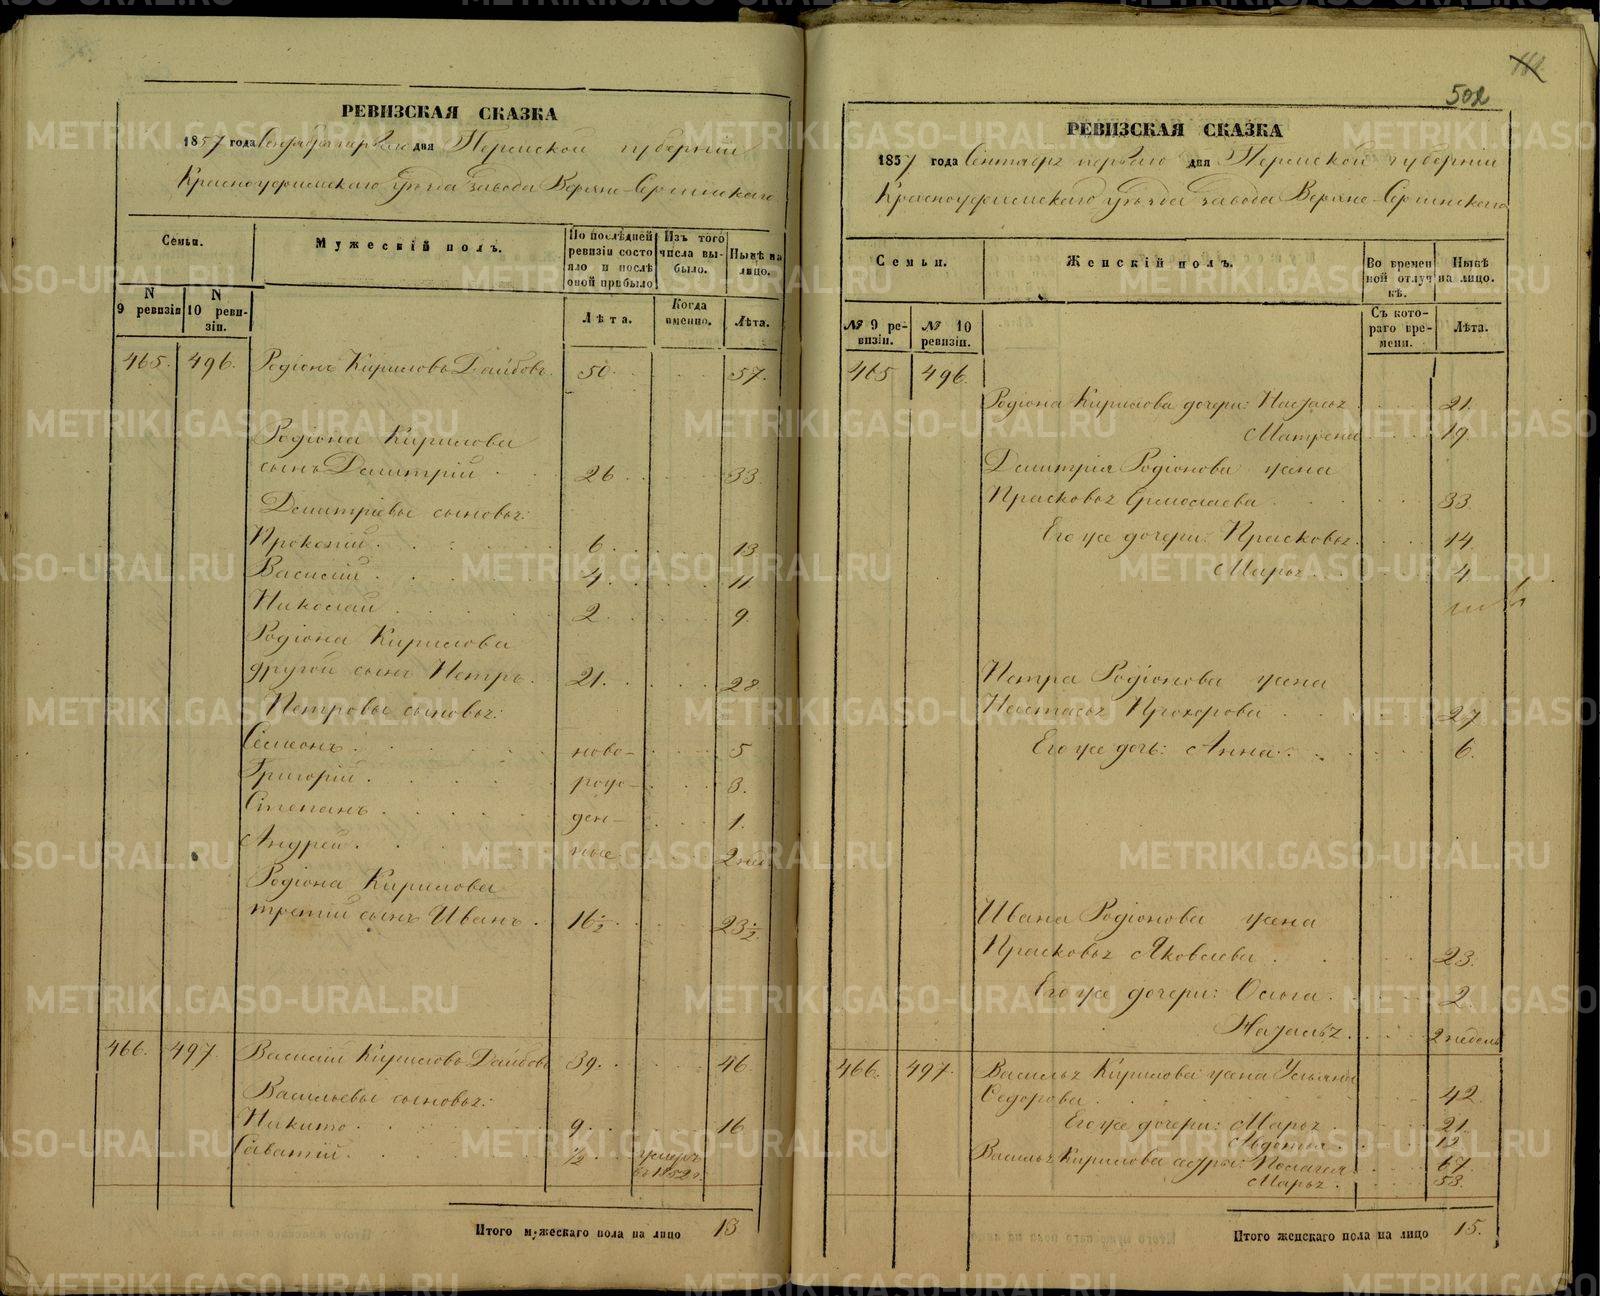 РЕВИЗСКАЯ СКАЗКА
1857 года Сентября первого дня Пермской губернии
Красноуфимскаго уѣзда завода Верхне-Сергинскаго
Семьи.
Мужескій полъ.
По послѣдней ревизіи состояло и послѣ оной прибыло
Изъ того числа выбыло.
Нынѣ на лицо.
N 9 ревизіи
N 10 ревизіи.
Лѣта.
Когда именно.
Лѣта.
465. 496. Родіонъ Кириловъ Даибовъ 50 57.
Родіона Кирилова
сынъ Демитрій 26 33.
Демитріевы сыновья:
Прокопій 6 13
Василій 4 11
Николай 2 9.
Родіона Кирилова
другой сынъ Петръ 21 28
Петровы сыновья:
Семеонъ ново- 5
Григорій рож- 3.
Степанъ ден- 1.
Андрей ные 2 нед.
Родіона Кирилова
третій сынъ Иванъ 16 1/2 23 1/2
466. 497. Василій Кириловъ Даибовъ 39. 46.
Васильевы сыновья:
Никита 9. 16
Саватій 1/2 умеръ
въ 1852 г.
Итого мужескаго пола на лицо 13
502
РЕВИЗСКАЯ СКАЗКА
1857 года Сентября первого дня Пермской губерніи
Красноуфимскаго уѣзда завода Верхне-Сергинскаго
Семьи.
Женскій полъ.
Во временной отлучкѣ.
Нынѣ на лицо.
№ 9 ревизіи.
№ 10 ревизіи.
Съ котораго времени.
Лѣта.
465 496.
Родіона Кирилова дочери: Настасья 21.
Матрена 19.
Демитрія Родіонова жена
Прасковья Ермолаева 33.
Его же дочери: Прасковья 14.
Марья 4
Петра Родіонова жена
Настасья Прохорова 27.
Его же дочь: Анна 6.
Ивана Родіонова жена
Прасковья Яковлева 23.
Его же дочери: Ольга 2.
Наталья 2 недель
466. 497. Василья Кирилова жена Ульяна
Федорова 42.
Его же дочери: Марья 21.
Авдотья 12
Василья Кирилова сестры: Пелагея 67.
Марья 53.
Итого женскаго пола на лицо 15.
METRIKI.GASO-URAL.RU